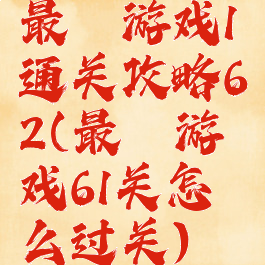 最 游戏1
通关攻略6
2(最 游
戏61关怎
么过关)